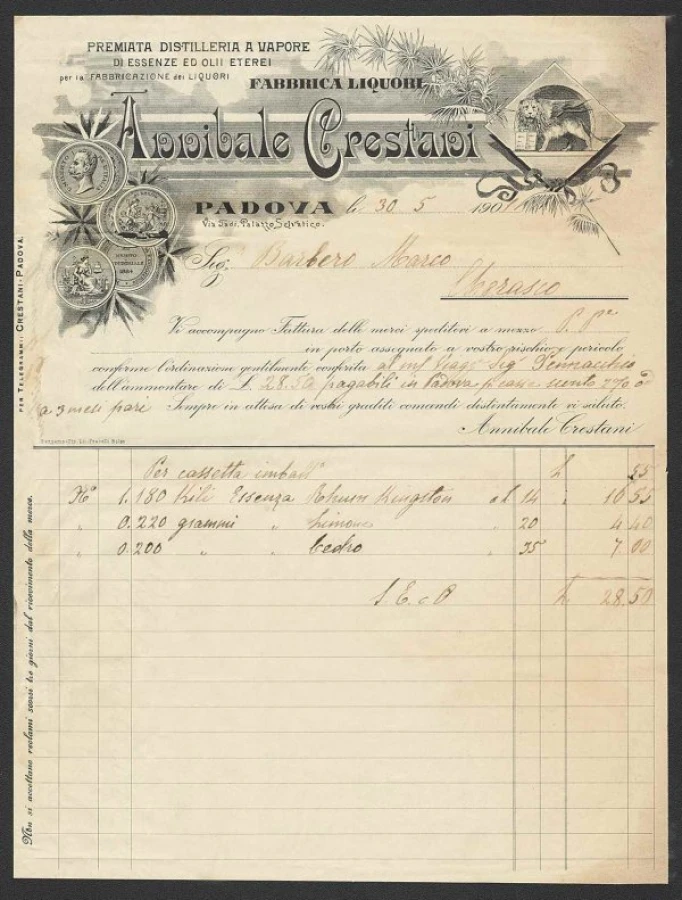 PREMIATA DISTILLERIA A VAPORE
DI ESSENZE ED OLII ETEREI
per la FABBRICAZIONE dei LIQUORI
FABBRICA LIQUORI
Annibale Crestani
PADOVA li 30 5 1901
Via Sadi, Palazzo Selvatico.
Sig. Barbero Marco
Cherasco
Vi accompagno Fattura delle merci speditevi a mezzo P. Pre
in porto assegnato a vostro rischio e pericolo
conforme l'ordinazione gentilmente conferita al Viagg. Sig.
dell'ammontare di L. 28.50 pagabili in Padova sconto 2% o
a 3 mesi pari Sempre in attesa di vostri graditi comandi distintamente vi saluto.
Annibale Crestani
Per cassetta imball° £ 55
K° 1.180 Kili Essenza Rhum Kingston a £ 14 " 16 55
" 0.220 grammi " Limone " 20 4 40
" 0.200 " " Cedro " 35 7.00
S. E. e O £ 28.50
PER TELEGRAMMI: CRESTANI-PADOVA.
Non si accettano reclami scorsi tre giorni dal ricevimento della merce.